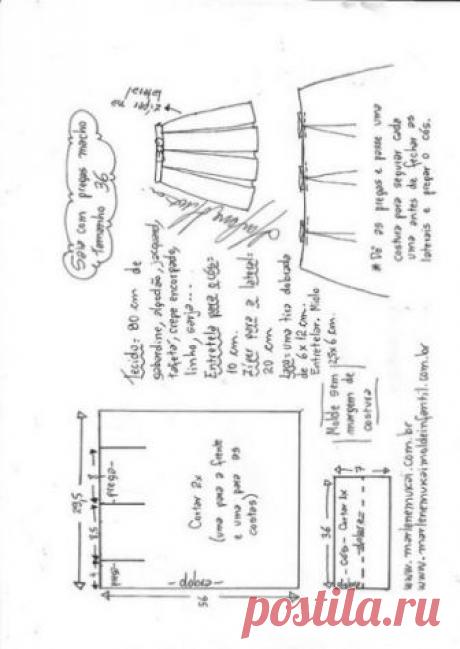 Saia com pregas macho
Tamanho 36
zíper na
lateral
Tecido: 80 cm de
gabardine, algodão, jacquard,
tafetá, crepe encorpado,
linho, sarja...
Entretela para o cós:
10 cm.
Zíper para a lateral:
20 cm
Laço: uma tira dobrada
de 6 x 12 cm.
Entretelar. Miolo
2,5x6 cm.
# Dê as pregas e passe uma
costura para segurar cada
uma antes de fechar as
laterais e pregar o cós.
Molde sem
margem de
costura
29,5
4
8,5
8
prega
prega
Cortar 2x
(uma para a frente
e uma para as
costas)
dobra
56
36
1
7
cós - Cortar 1x
dobrez
www.marlenemukai.com.br
www.marlenemukaimoldeinfantil.com.br
postila.ru